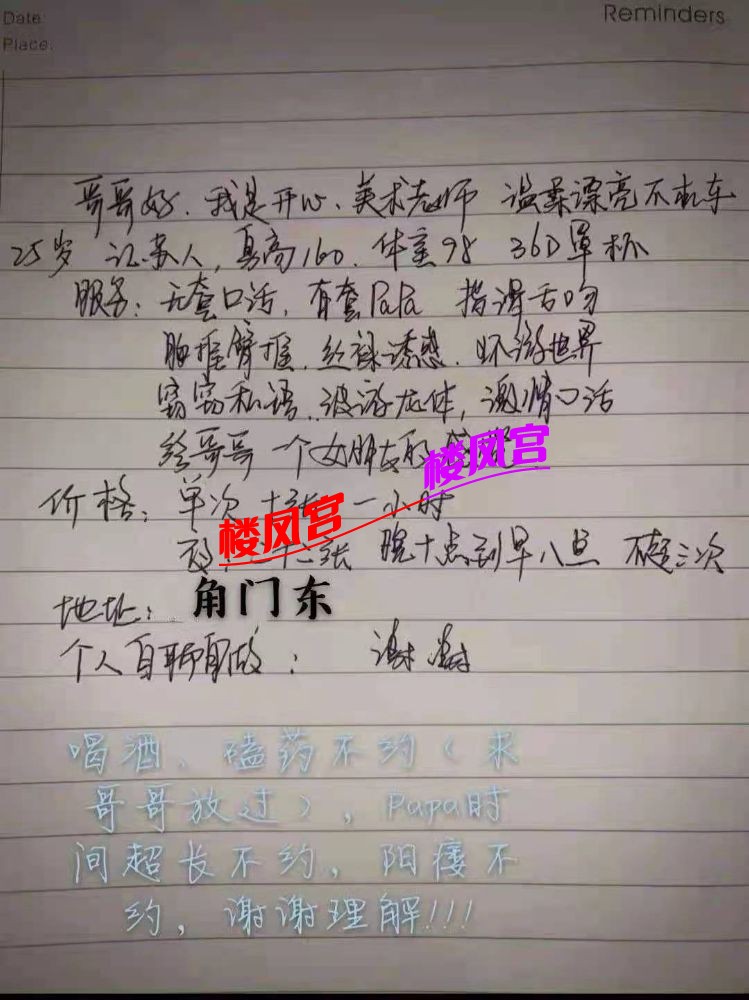 Date:
Place:
Reminders
哥哥好.我是开心、美术老师 温柔漂亮不机车
25岁 江苏人,身高160.体重98 36D罩杯
服务:无套口活,有套PaPa 指滑舌吻
胸推臀推.丝袜诱惑.环游世界
窃窃私语.波游龙体,激情口活
给哥哥一个女朋友的
楼凤宫
价格:单次十张 一小时
楼凤宫
二十六张 晚十点到早八点 不超三次
地址:角门东
个人自聊自做: 谢谢
喝酒、嗑药不约(求
哥哥放过),Papa时
间超长不约,阳痿不
约,谢谢理解!!!